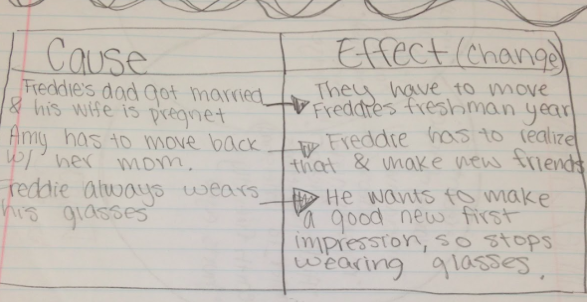 Cause
Freddie's dad got married
& his wife is pregnet
Amy has to move back
w/ her mom.
Freddie always wears
his glasses
Effect (change)
They have to move
Freddies freshman year
Freddie has to realize
that & make new friends
He wants to make
a good new first
impression, so stops
wearing glasses.